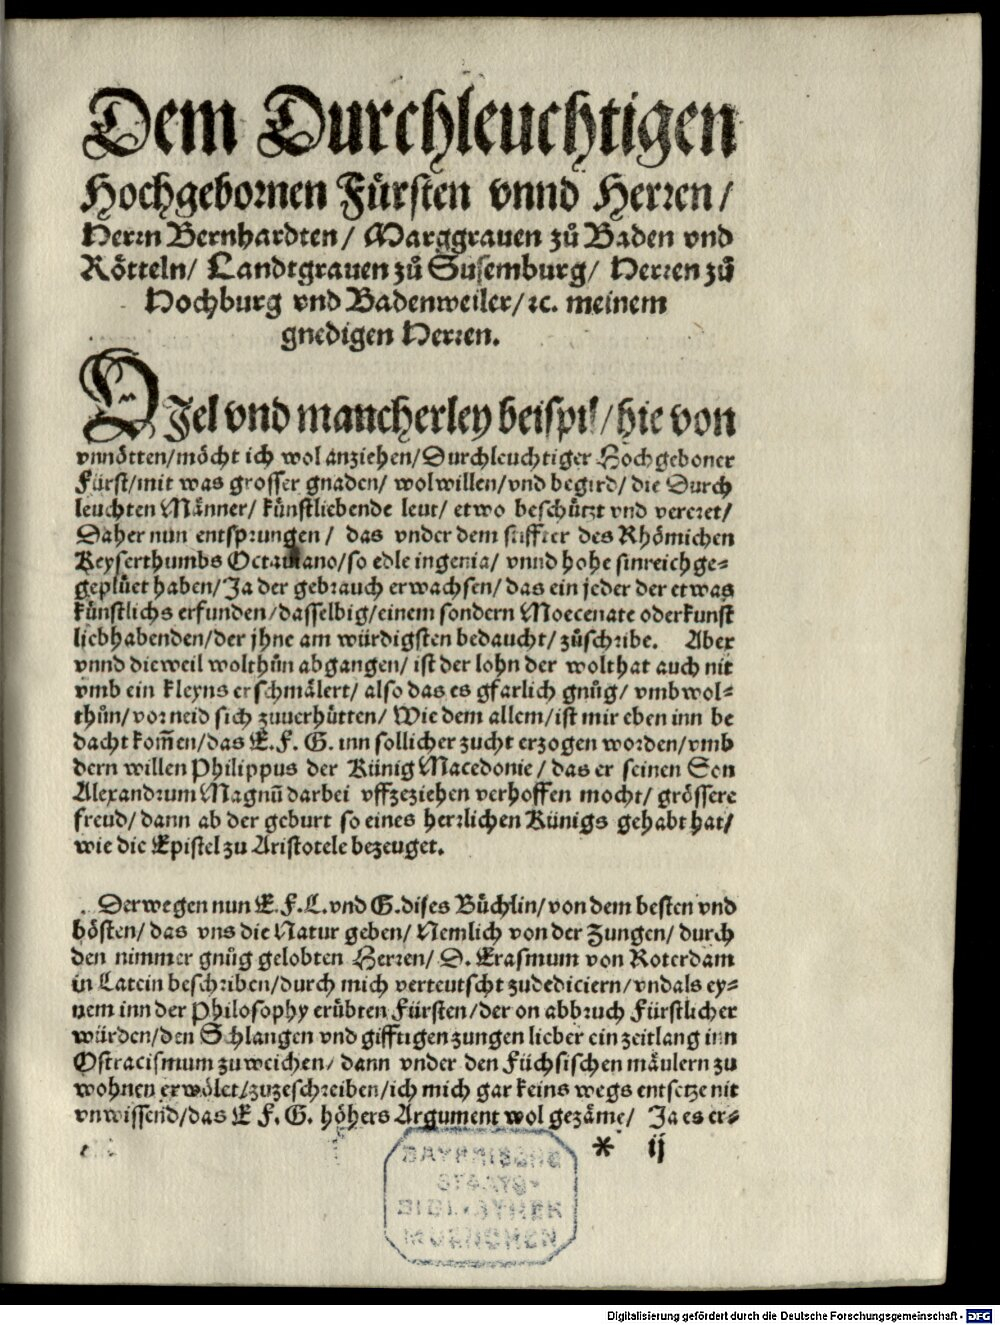 Dem Durchleuchtigen
Hochgebornen Fürsten vnnd Herren/
Herrn Bernhardten/ Marggrauen zů Baden vnd
Rötteln/ Landtgrauen zů Susemburg/ Herren zů
Hochburg vnd Badenweiler/ ꝛc. meinem
gnedigen Herren.
VIel vnd mancherley beispil/ hie von
vnnötten/ möcht ich wol anziehen/ Durchleuchtiger Hochgeboner
Fürst/ mit was grosser gnaden/ wolwillen/ vnd begird/ die Durch
leuchten Männer/ künstliebende leut/ etwo beschützt vnd vereret/
Daher nun entsprungen/ das vnder dem stiffter des Rhömichen
Keyserthumbs Octauiano/ so edle ingenia/ vnnd hohe sinreich ge-
geplüet haben/ Ja der gebrauch erwachsen/ das ein jeder der etwas
künstlichs erfunden/ dasselbig/ einem sondern Moecenate oder kunst
liebhabenden/ der jhne am würdigsten bedaucht/ zůschribe. Aber
vnnd dieweil wolthůn abgangen/ ist der lohn der wolthat auch nit
vmb ein kleyns erschmälert/ also das es gfarlich gnůg/ vmb wol-
thůn/ vor neid sich zuuerhütten/ Wie dem allem/ ist mir eben inn be
dacht kom̄en/ das E. F. G. inn sollicher zucht erzogen worden/ vmb
dern willen Philippus der Künig Macedonie/ das er seinen Son
Alexandrum Magnū darbei vffzeziehen verhoffen mocht/ grössere
freud/ dann ab der geburt so eines herrlichen Künigs gehabt hat/
wie die Epistel zu Aristotele bezeuget.
Derwegen nun E. F. L. vnd G. dises Büchlin/ von dem besten vnd
bösten/ das vns die Natur geben/ Nemlich von der Zungen/ durch
den nimmer gnůg gelobten Herren/ D. Erasmum von Roterdam
in Latein beschriben/ durch mich verteutscht zudediciern/ vnd als ey-
nem inn der Philosophy erübten Fürsten/ der on abbruch Fürstlicher
würden/ den Schlangen vnd gifftigen zungen lieber ein zeitlang inn
Ostracismum zu weichen/ dann vnder den Füchsischen mäulern zu
wohnen erwölet/ zuzeschreiben/ ich mich gar keins wegs entsetze nit
vnwissend/ das E F. G. höhers Argument wol gezäme/ Ja es er-
* ij
BAYERISCHE
STAATS-
BIBLIOTHEK
MUENCHEN
Digitalisierung gefördert durch die Deutsche Forschungsgemeinschaft - DFG